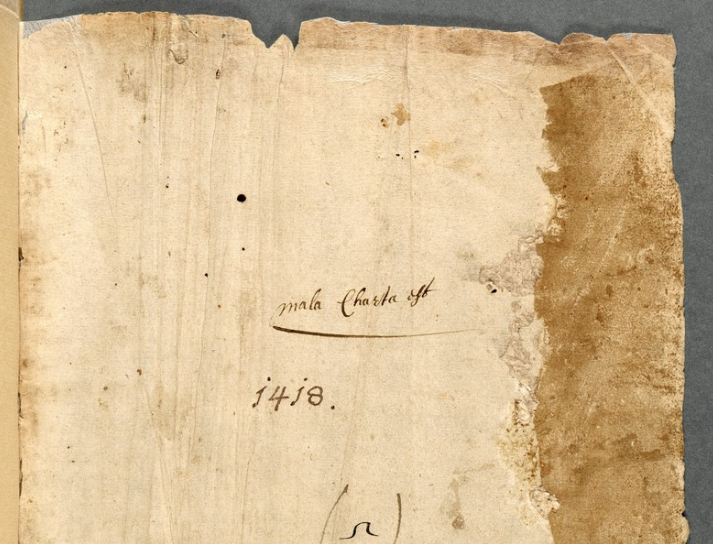 mala Charta est
1418.